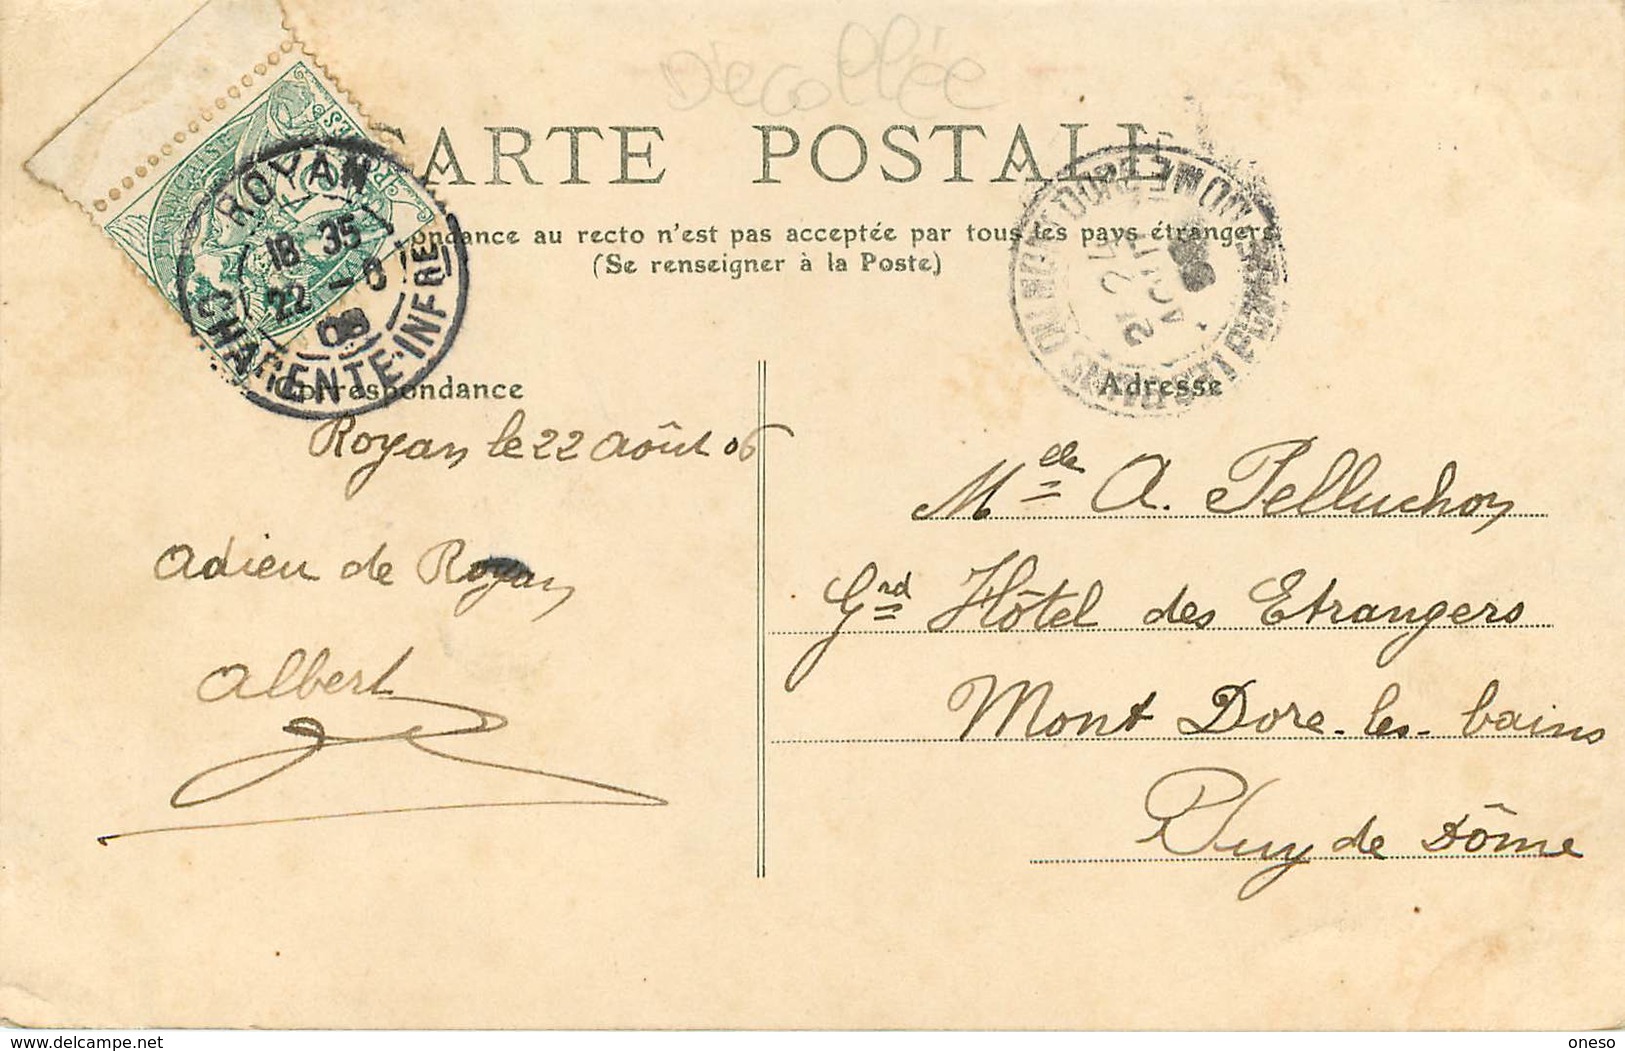 Décollée
CARTE POSTALE
ondance au recto n'est pas acceptée par tous les pays étrangers
(Se renseigner à la Poste)
FRANÇAISE
ROYAN
18 35
22 - 8
06
CHARENTE-INFRE
Correspondance
Adresse
Royan le 22 Août 06
Adieu de Royan
Albert
Melle A. Pelluchon
Grd Hôtel des Etrangers
Mont Dore-les-bains
Puy de Dôme
delcampe.net
oneso